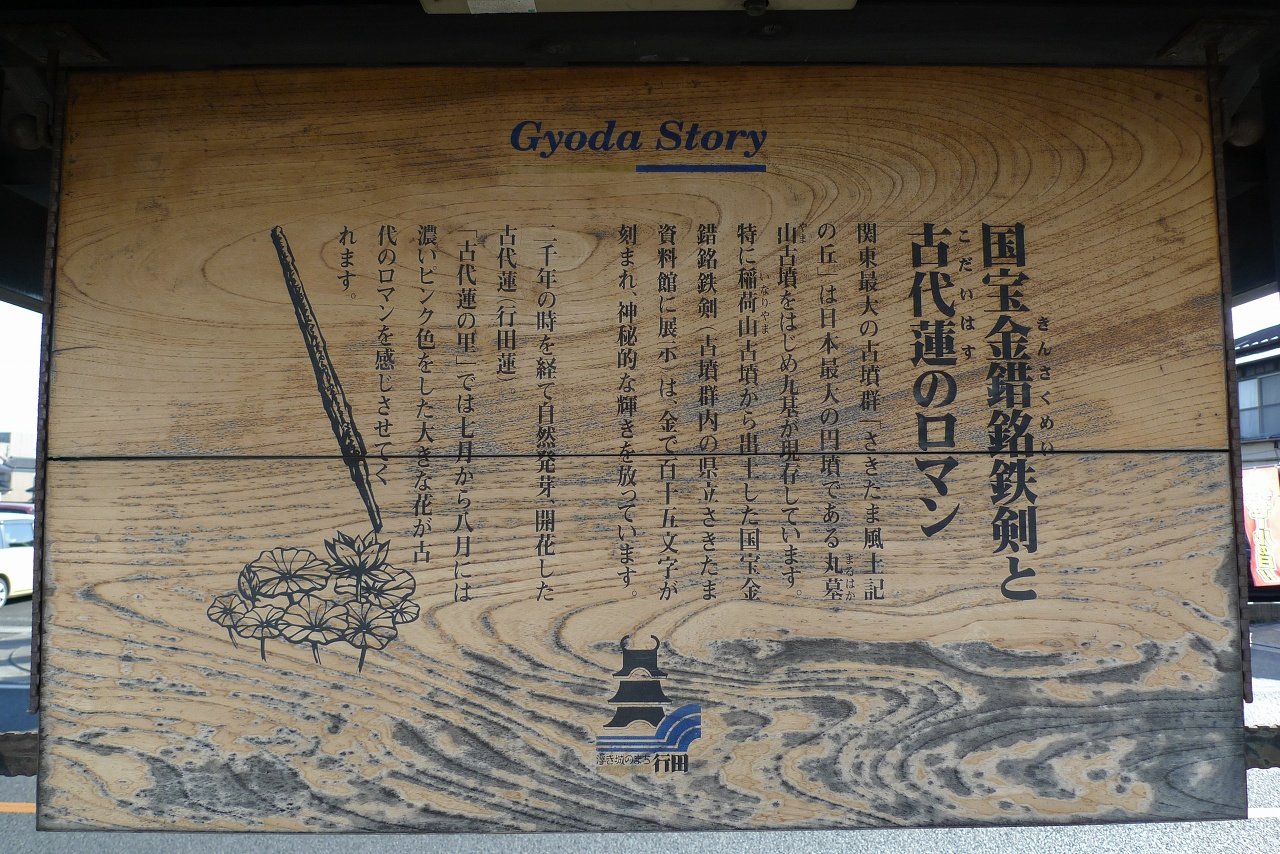 Gyoda Story
国宝金錯銘鉄剣と
きんさくめい
古代蓮のロマン
こだいはす
関東最大の古墳群「さきたま風土記
の丘」は日本最大の円墳である丸墓
まるはか
山古墳をはじめ九基が現存しています。
やま
特に稲荷山古墳から出土した国宝金
いなりやま
錯銘鉄剣(古墳群内の県立さきたま
資料館に展示)は、金で百十五文字が
刻まれ、神秘的な輝きを放っています。
二千年の時を経て自然発芽、開花した
古代蓮(行田蓮)。
「古代蓮の里」では七月から八月には
濃いピンク色をした大きな花が古
代のロマンを感じさせてく
れます。
浮き城のまち行田